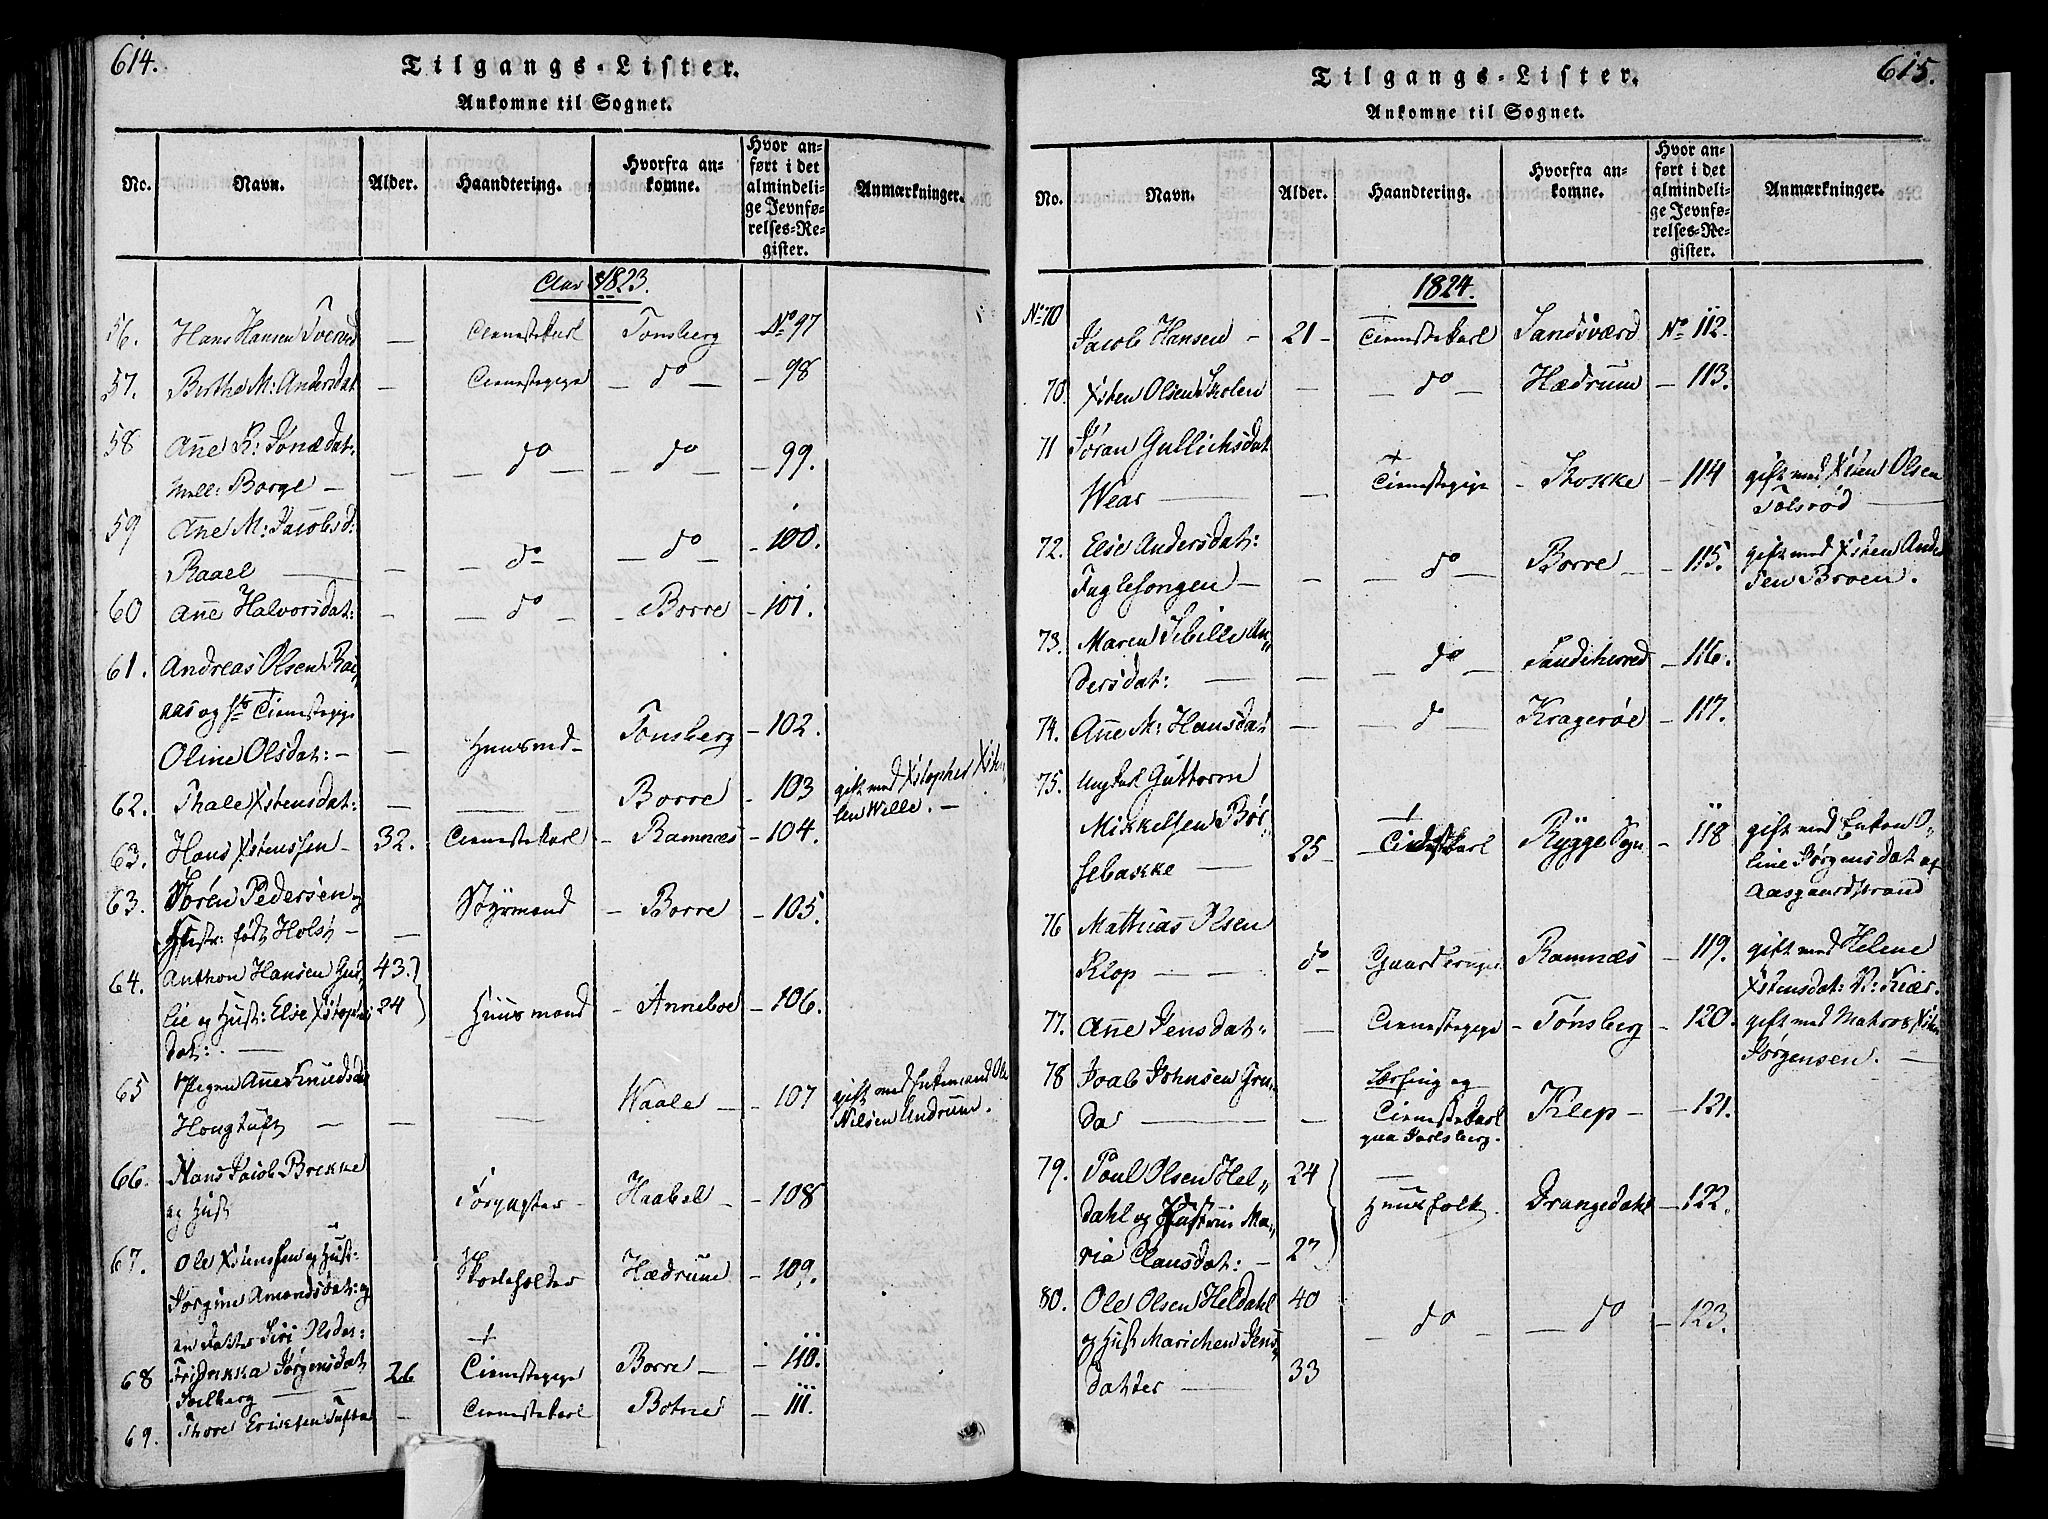 614.
Tilgangs-Lister.
Ankomne til Sognet.
No. Navn. Alder. Haandtering. Hvorfra ankomne. Hvor anført i det almindelige Jevnførelses-Register. Anmærkninger.
Aar 1823.
56. Hans Hansen — Tienstekarl Tonsberg No 97
57. Berthe M: Andersdat — Tienstepige — do — – 98
58 Ane K:
— Borge — — do — — do — – 99.
59 Ane M: Jacobsd:
Raael — — do — — do — – 100.
60 Ane Halvorsdat: — — do — – Borre – 101.
61. Andreas Olsen
aas og Tienstepige
Oline Olsdat: — — Huusmd – Tonsberg – 102.
62. Thale Xstensdat: — — Borre – 103 gift med Xstopher
sen Wille. —
63. Hans Xstenssen – 32. Tienstekarl – Ramnæs – 104.
63. Søren Pedersen og
Hustr: født Holst — — Styrmand – Borre – 105.
64. Anthon Hansen
lie og Hust: Else 43. 24 Huusmand – Anneboe – 106.
dat: —
65 Pigen Ane Knudsdat
Hougtuft — — — Waale – – 107 gift med Enkemand Ole
Nilsen Undrum.
66. Hans Jacob Brekke
og Hust Haabel – – 108
67. Ole Xstenssen og Hust:
Jørgine Amondsdat: og
en Datter Siri Olsdat: Skoeholder Hædrum – 109.
68 Fridrikka Jørgensdat
Solberg — 26 Tienstepige Borre – – 110.
69. Thore Eriksen Tufte — Tienstekarl Botne – 111.
615.
Tilgangs-Lister.
Ankomne til Sognet.
No. Navn. Alder. Haandtering. Hvorfra ankomne. Hvor anført i det almindelige Jevnførelses-Register. Anmærkninger.
1824.
No 70 Jacob Hansen – 21 – Tienstekarl Sandsværd No 112.
70. Xsten Olsen Skolen — — do — Hædrum – 113.
71 Jøran Gullichsdat
Wear — — Tienstepige – Stokke – 114 gift med Xsten Olsen
Tolsrød —
72. Else Andersdat:
Fuglesongen — — — do — Borre – – 115. gift med Xsten Ander
sen Broen.
73. Maren Sibille An„
dersdat: — — — do — Sandeherred – 116.
74. Ane M: Hansdat — — do — Kragerøe – 117.
75. Ungkarl Guttorm
Mikkelsen Bør„
sebakke — 25 – Tienstekarl Rygge Sogn – 118 gift med Enken O„
line Jørgensdat af
Aasgaardstrand
76 Mathias Olsen
Klop — — do Ramnæs – 119. gift med Helene
Xstensdat: N: Kiær.
77. Ane Jensdat: — Tienstepige – Tønsberg – 120. gift med Matros Xsten
Jørgensen. —
78 Joab Johnsen Gru„
da — — og
Tienstekarl
paa Jarlsberg. Klep – – 121.
79. Poul Olsen Hel„ 24
dahl og Hustrue Ma„ Huusfolk. Drangedahl – 122.
ria Clausdat: – 27
80. Ole Olsen Heldahl 40
og Hust Marichen Jens„ — do — — do – 123.
datter — 33